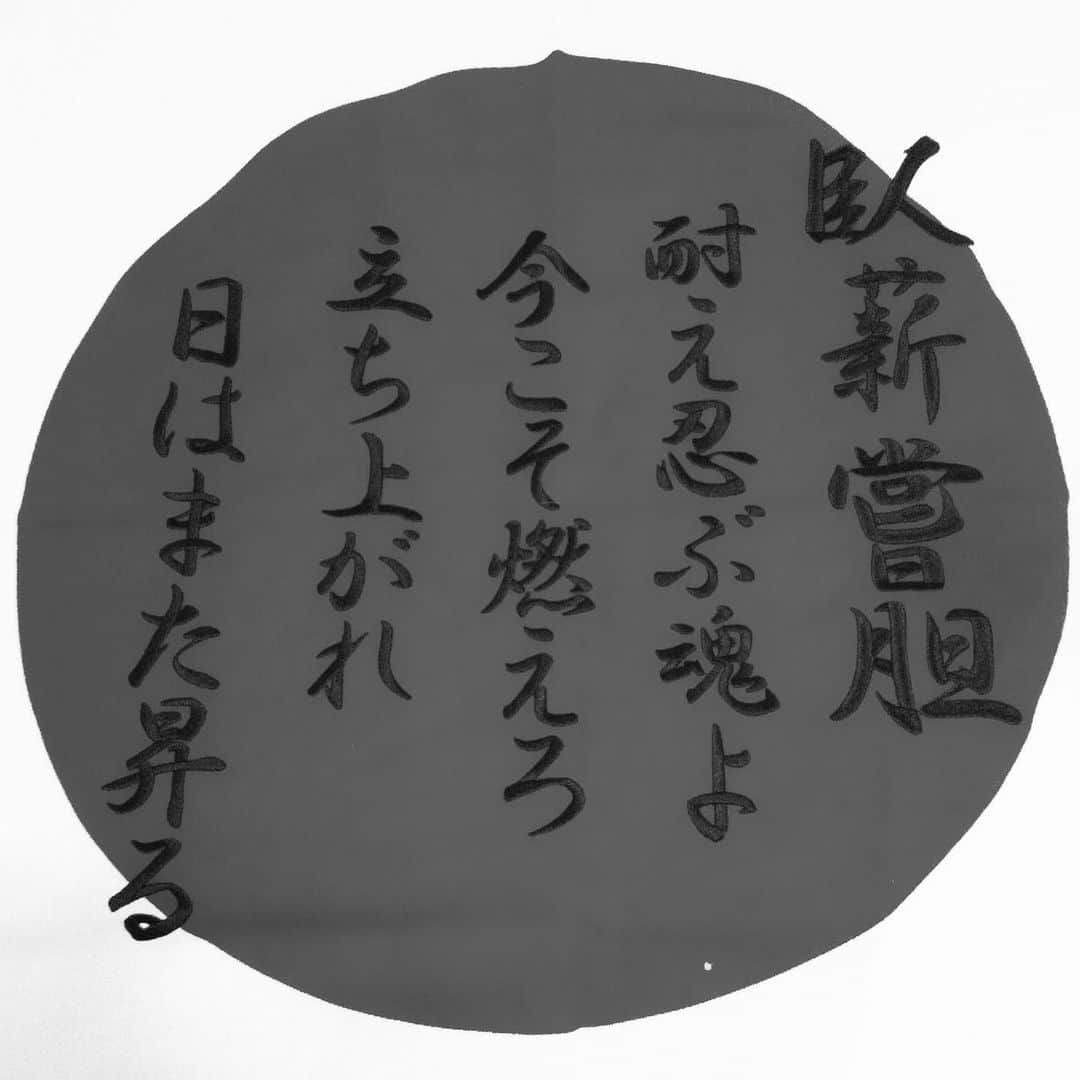 臥薪嘗胆
耐え忍ぶ魂よ
今こそ燃えろ
立ち上がれ
日はまた昇る